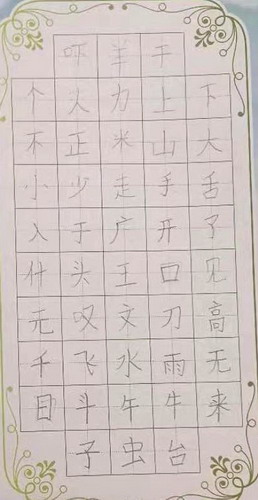 吓羊干
个尖力上下
不正米山大
小少走手舌
入于广开了
什头王口见
元叹文刀高
千飞水雨无
目斗午牛来
子虫台